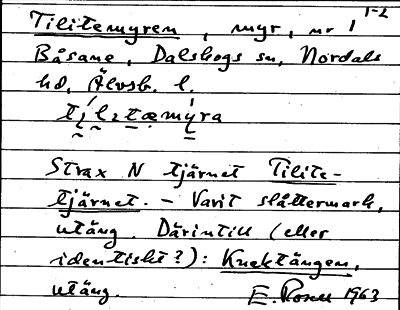 Tilitemyren, myr, nr 1 1-2
Båsane, Dalskogs sn, Nordals
hd, Älvsb. l.
Strax N tjärnet Tilite-
tjärnet. - Varit slåttermark,
utäng. Därintill (eller
identiskt?): Knektängen,
utäng. E. Rosell 1963